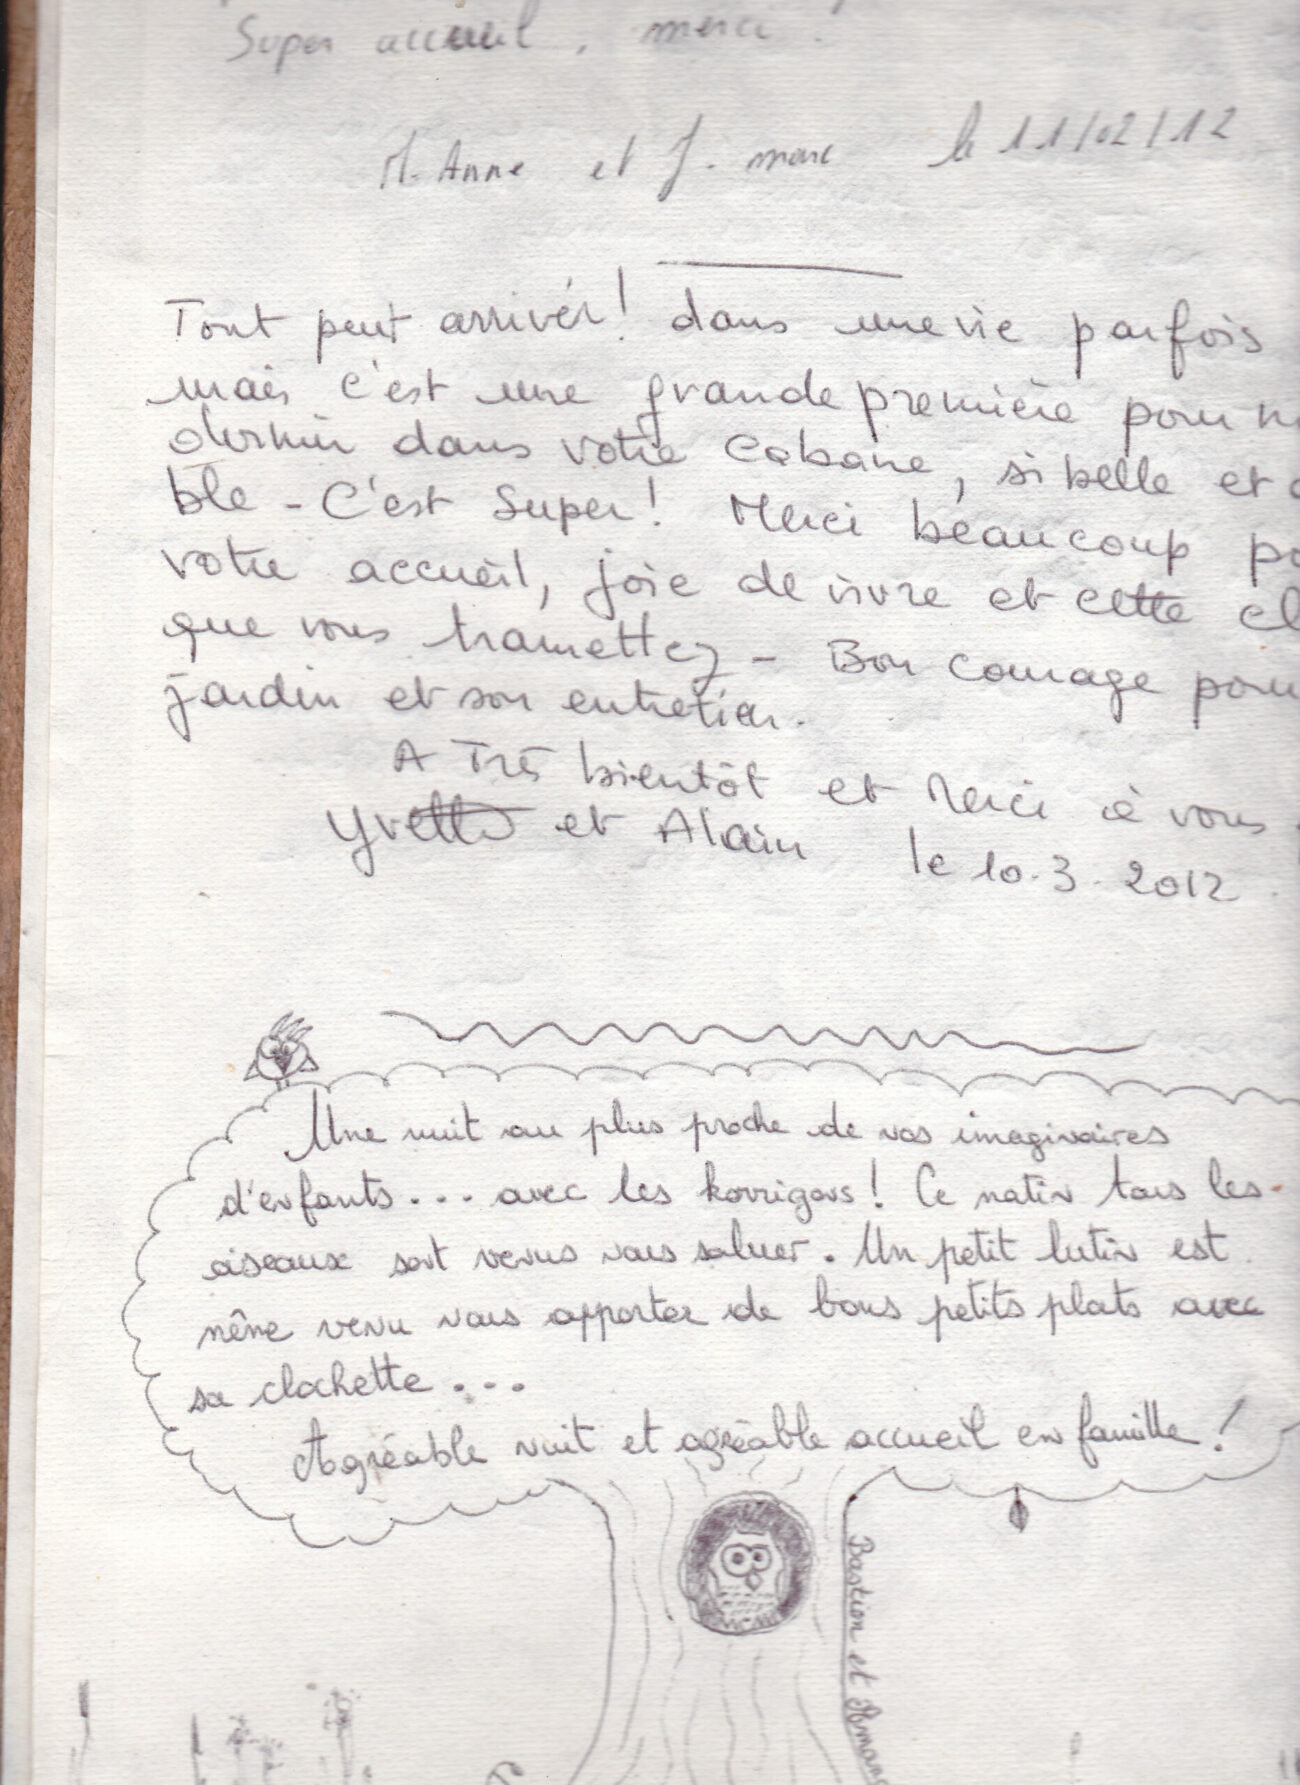 Super accueil, merci.
M. Anne et J. marc le 11/02/12
Tout peut arriver! dans une vie parfois
mais c'est une grande première pour
dormir dans votre Cabane, si belle et
ble - C'est Super! Merci beaucoup
votre accueil, joie de vivre et cette
que vous tramettez - Bon courage pour
jardin et son entretien.
A Très bientôt et Merci à vous
Yvette et Alain le 10.3.2012.
Une nuit au plus proche de vos imaginaires
d'enfants... avec les korrigans! Ce matin tous les
oiseaux sont venus nous saluer. Un petit lutin est
même venu nous apporter de bons petits plats avec
sa clochette...
Agréable nuit et agréable accueil en famille!
Bastien et